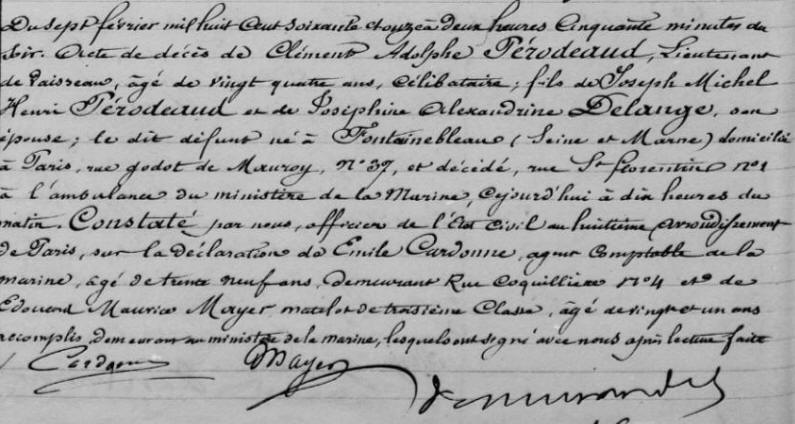 Du sept février mil huit cent soixante et onze à deux heures cinquante minutes du
soir. Acte de décès de Clément Adolphe Pérodeaud, Lieutenant
de Vaisseau, âgé de vingt quatre ans, célibataire; fils de Joseph Michel
Henri Pérodeaud et de Joséphine Alexandrine Delange, son
épouse; le dit défunt né à Fontainebleau (Seine et Marne) domicilié
à Paris, rue godot de Mauroy, n° 37, et décédé, rue St florentin n° 1
à l'ambulance du ministère de la Marine, cejourd'hui à dix heures du
matin. Constaté par nous, officier de l'état civil au huitième arrondissement
de Paris, sur la déclaration de Emile Cardonne, agent Comptable de la
marine, âgé de trente neuf ans, demeurant Rue Coquillière n° 4 et de
Edouard Maurice Mayer, matelot de troisième Classe, âgé de vingt et un ans
accomplis, demeurant au ministère de la marine, lesquels ont signé avec nous après lecture faite
Mayer